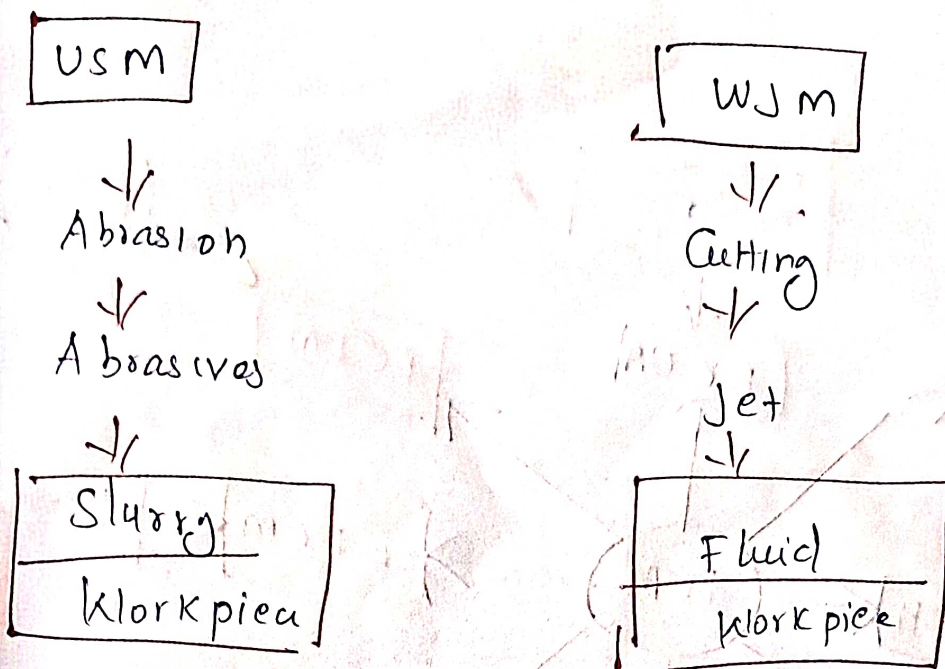 USM
Abrasion
Abrasives
Slurry
Workpiece
WJM
Cutting
Jet
Fluid
Workpiece